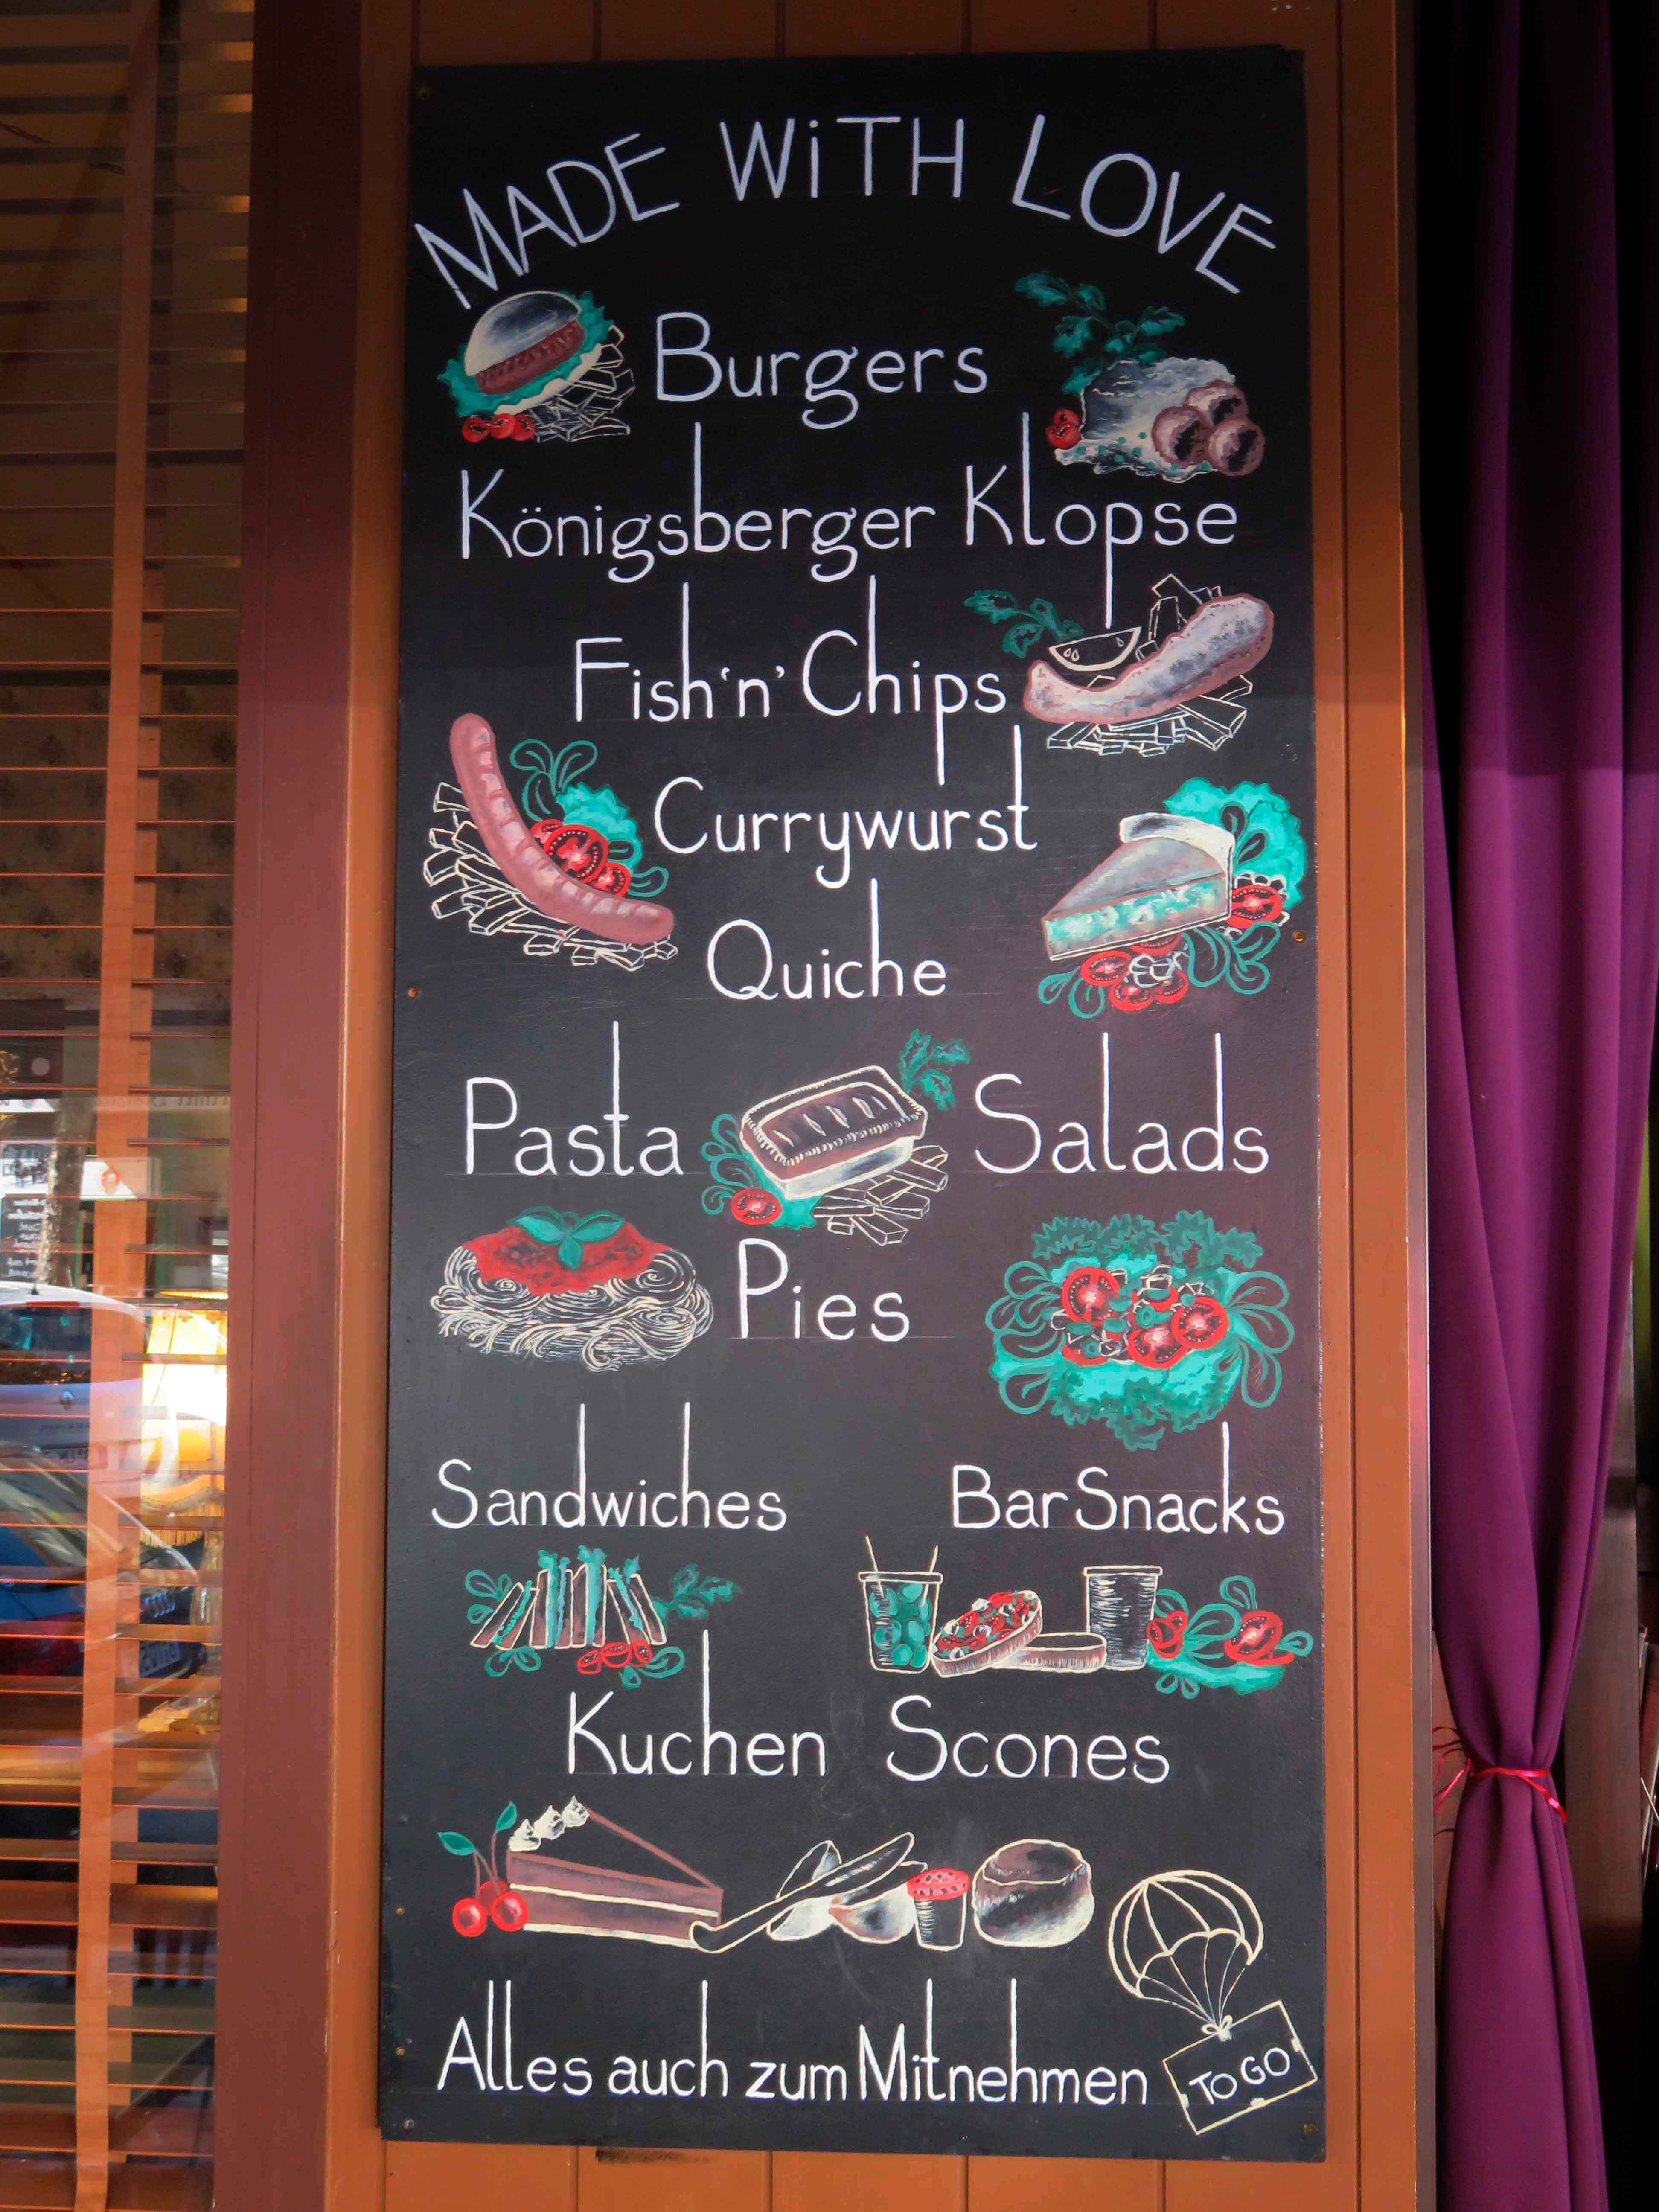 MADE WiTH LOVE
Burgers
Königsberger Klopse
Fish'n' Chips
Currywurst
Quiche
Pasta Salads
Pies
Sandwiches Bar Snacks
Kuchen Scones
Alles auch zum Mitnehmen
To GO